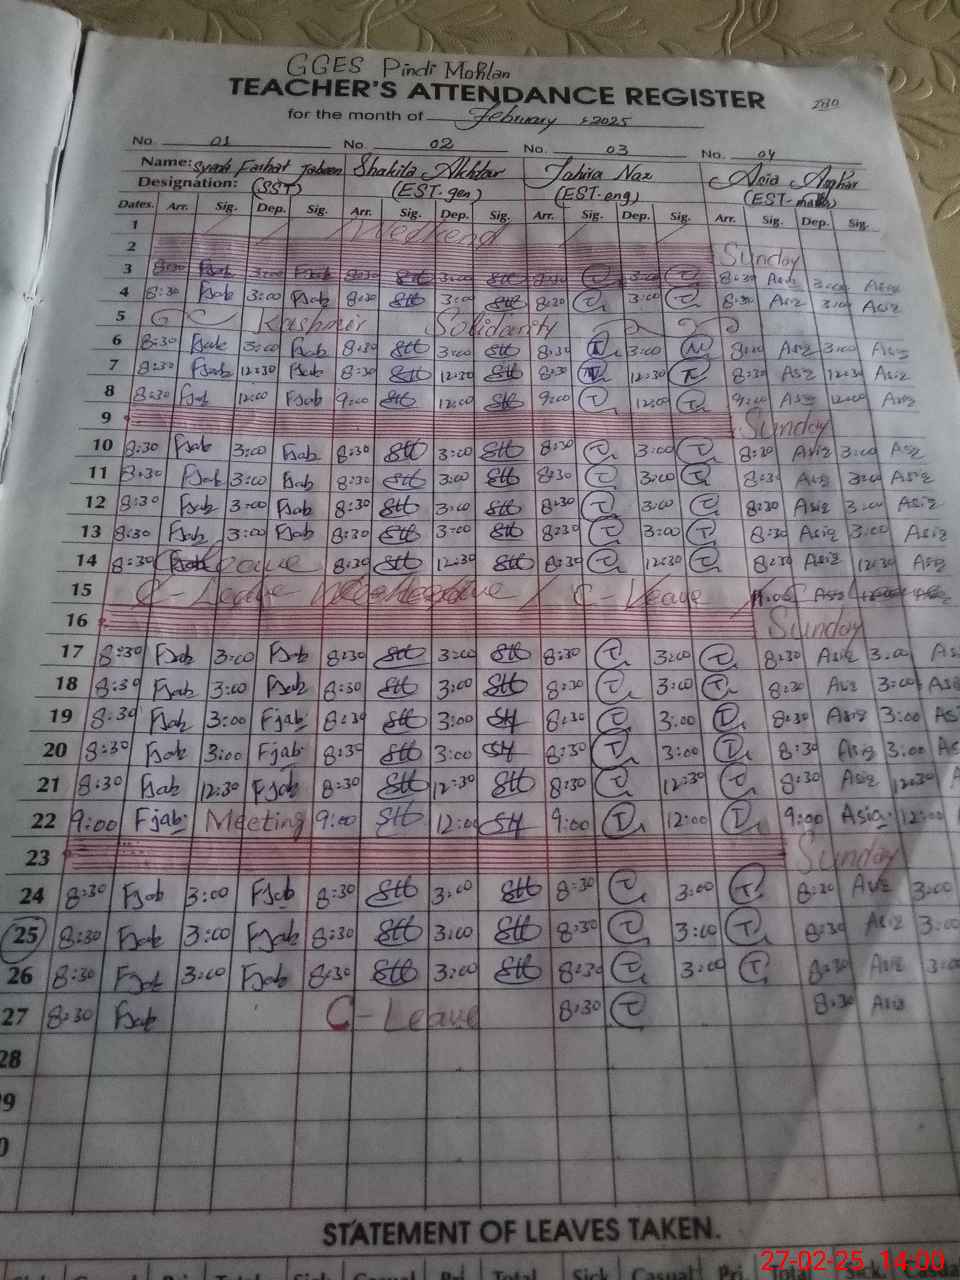 GGES Pindi Mohlan
TEACHER'S ATTENDANCE REGISTER
280
for the month of February, 2025
No. 01 No. 02 No. 03 No. 04
Name: Syeda Farhat Jabeen Shakila Akhtar Tahira Naz Asia Asghar
Designation: (SST) (EST-gen) (EST-eng) (EST-math)
Dates. Arr. Sig. Dep. Sig. Arr. Sig. Dep. Sig. Arr. Sig. Dep. Sig. Arr. Sig. Dep. Sig.
1 Weekend
2 Sunday
3 8:30 Fjab 3:00 Fjab 8:30 3:00 8:30 3:00 8:30 Asiz 3:00 Asiz
4 8:30 Fjab 3:00 Fjab 8:30 3:00 8:30 3:00 8:30 Asiz 3:00 Asiz
5 Kashmir Solidarity
6 8:30 Fjab 3:00 Fjab 8:30 3:00 8:30 3:00 8:30 Asiz 3:00 Asiz
7 8:30 Fjab 12:30 Fjab 8:30 12:30 8:30 12:30 8:30 Asiz 12:30 Asiz
8 8:30 Fjab 12:00 Fjab 9:00 12:00 9:00 12:00 9:00 Asiz 12:00 Asiz
9 Sunday
10 8:30 Fjab 3:00 Fjab 8:30 3:00 8:30 3:00 8:30 Asiz 3:00 Asiz
11 8:30 Fjab 3:00 Fjab 8:30 3:00 8:30 3:00 8:30 Asiz 3:00 Asiz
12 8:30 Fjab 3:00 Fjab 8:30 3:00 8:30 3:00 8:30 Asiz 3:00 Asiz
13 8:30 Fjab 3:00 Fjab 8:30 3:00 8:30 3:00 8:30 Asiz 3:00 Asiz
14 8:30 Leave 8:30 12:30 8:30 12:30 8:30 Asiz 12:30 Asiz
15 C-Leave C-Leave
16 Sunday
17 8:30 Fjab 3:00 Fjab 8:30 3:00 8:30 3:00 8:30 Asiz 3:00
18 8:30 Fjab 3:00 Fjab 8:30 3:00 8:30 3:00 8:30 Asiz 3:00
19 8:30 Fjab 3:00 Fjab 8:30 3:00 8:30 3:00 8:30 Asiz 3:00
20 8:30 Fjab 3:00 Fjab 8:30 3:00 8:30 3:00 8:30 Asiz 3:00
21 8:30 Fjab 12:30 Fjab 8:30 12:30 8:30 12:30 8:30 Asiz 12:30
22 9:00 Fjab Meeting 9:00 12:00 9:00 12:00 9:00 Asia 12:00
23 Sunday
24 8:30 Fjab 3:00 Fjab 8:30 3:00 8:30 3:00 8:30 Asiz 3:00
25 8:30 Fjab 3:00 Fjab 8:30 3:00 8:30 3:00 8:30 Asiz 3:00
26 8:30 Fjab 3:00 Fjab 8:30 3:00 8:30 3:00 8:30 Asiz 3:00
27 8:30 Fjab C-Leave 8:30 8:30 Asiz
28
9
0
STATEMENT OF LEAVES TAKEN.
27-02-25 14:00